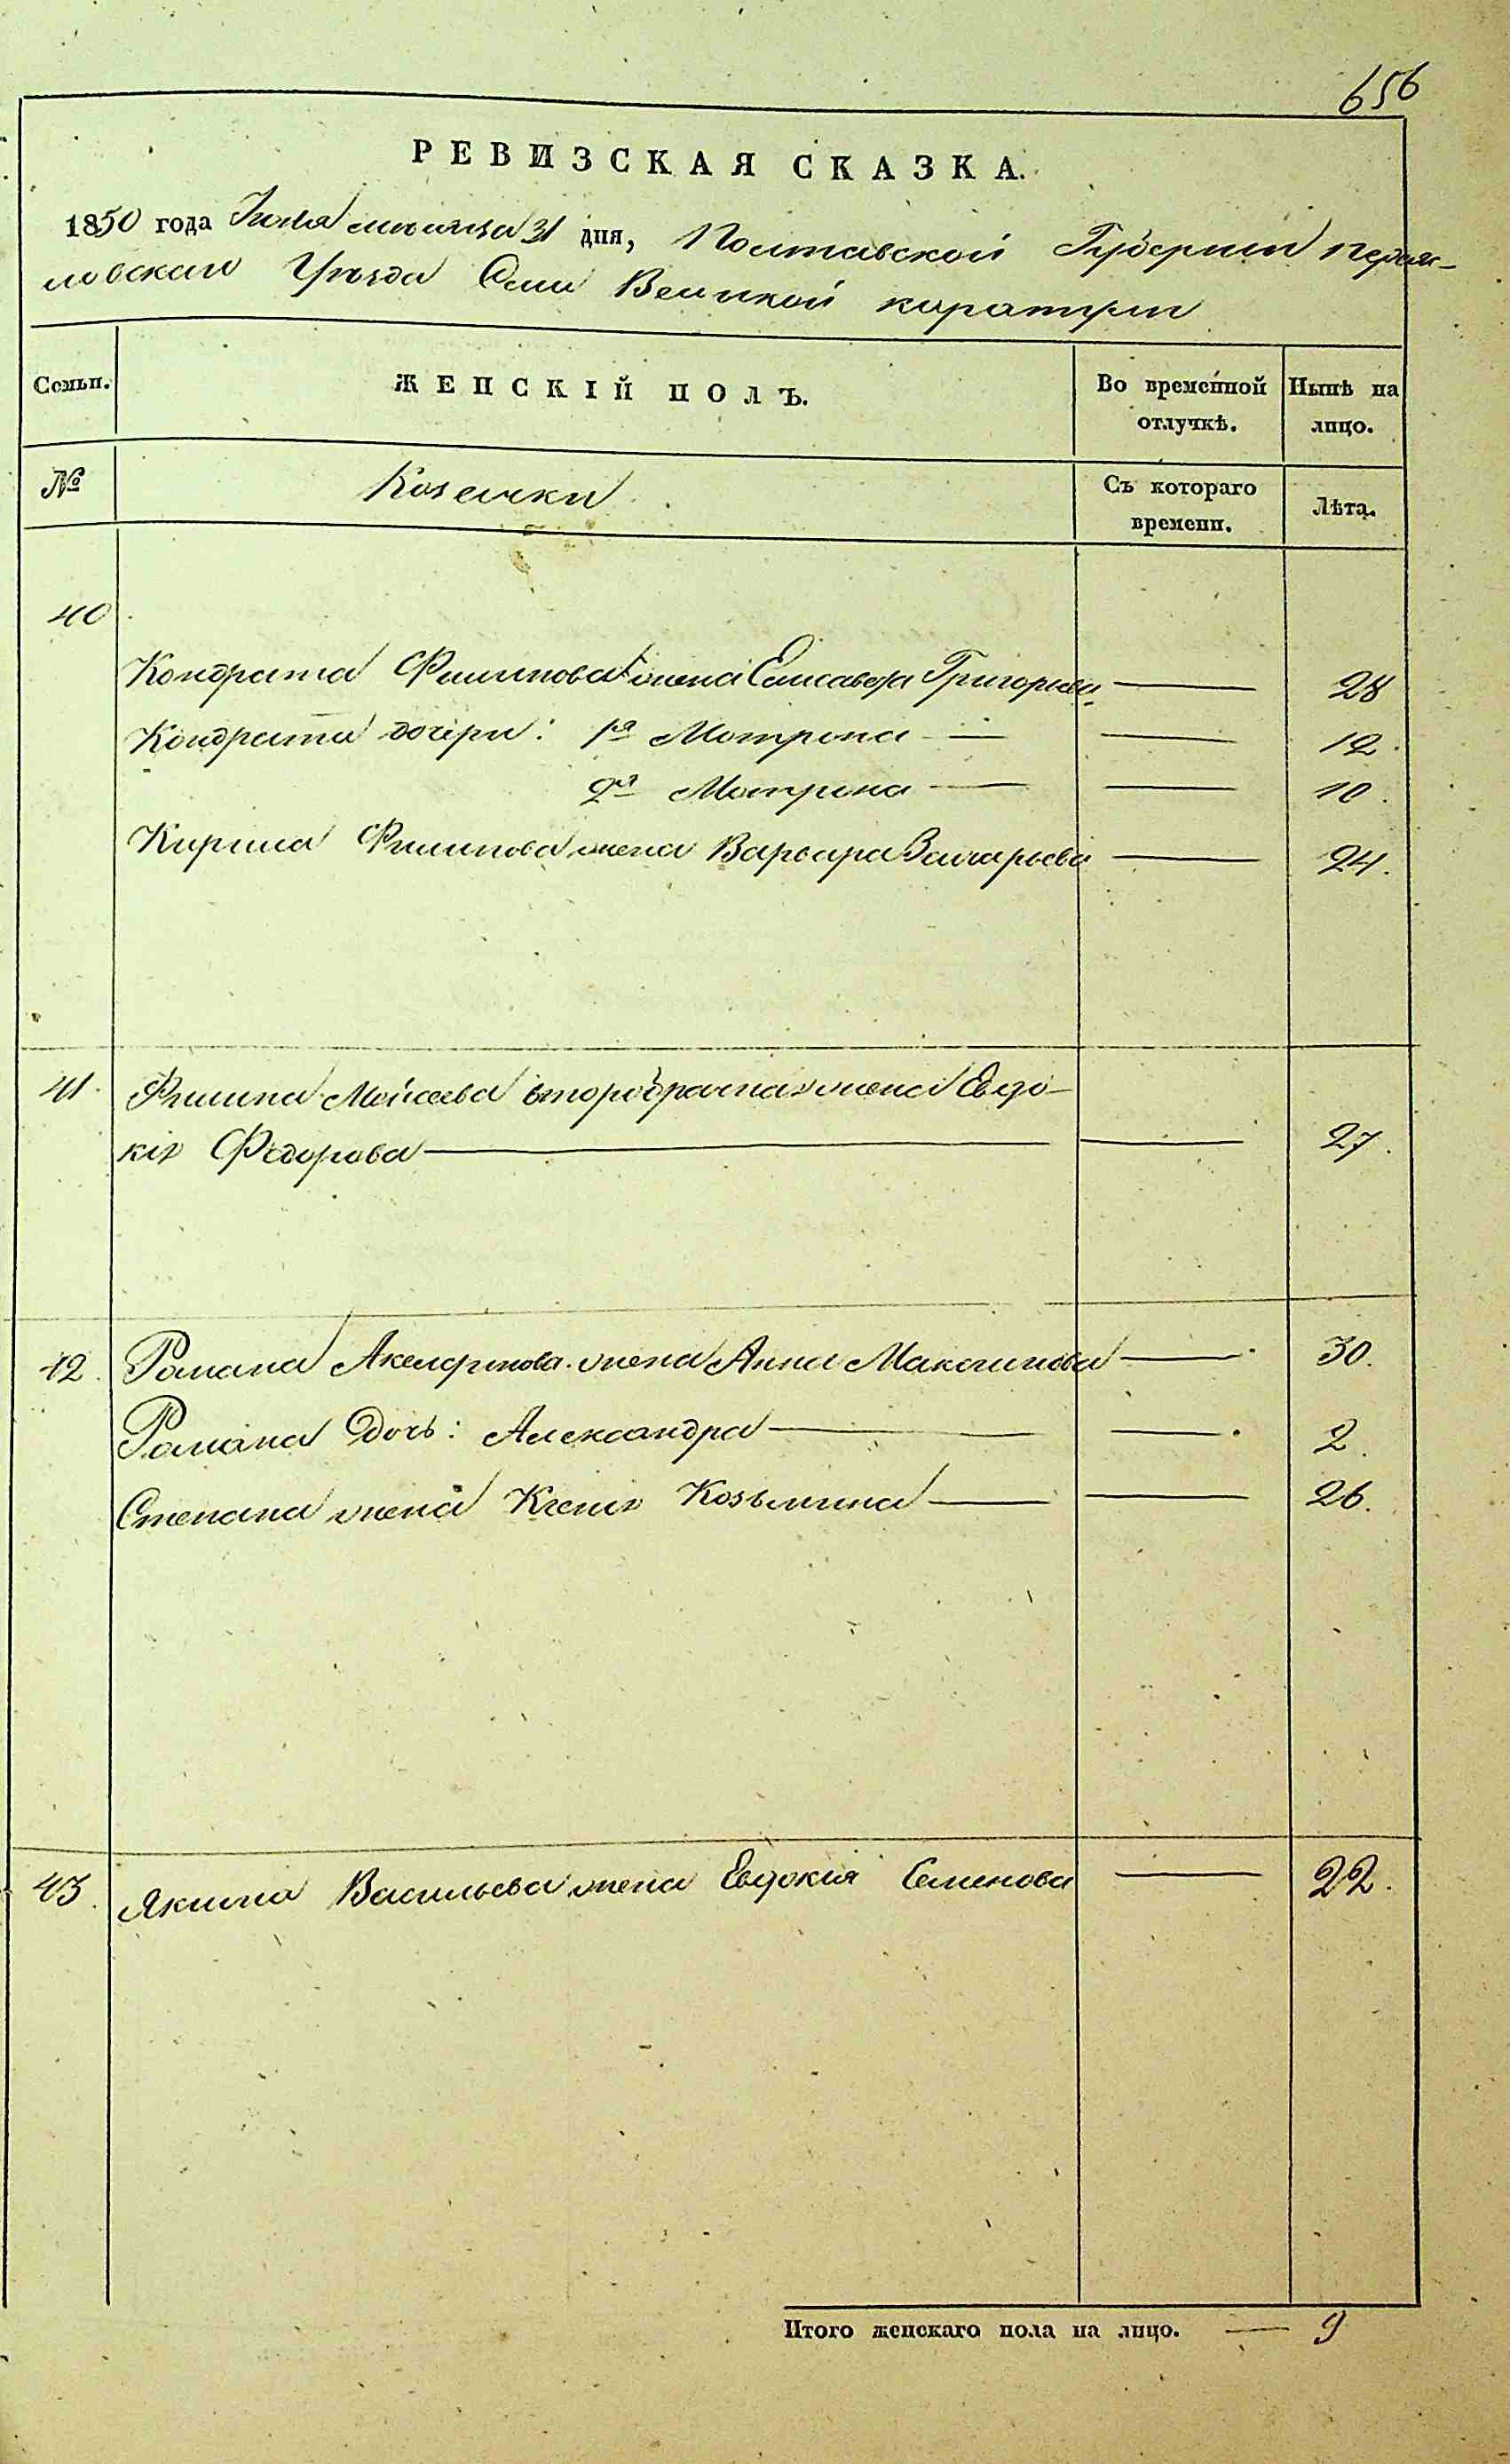 656
РЕВИЗСКАЯ СКАЗКА.
1850 года Іюля мѣсяца 31 дня, Полтавской Губерніи Переяс-
ловскаго Уѣзда Села Великой каратули
Семьи. ЖЕНСКІЙ ПОЛЪ. Во временной отлучкѣ. Нынѣ на лицо.
№ Козачки Съ котораго времени. Лѣта.
40
Кондрата Филипова жена Елисавета Григорьева — 28
Кондрата дочери: 1я Мотрона — — 12.
2я Мотрона — — 10.
Кирила Филипова жена Варвара Захарьева — 24.
41. Филипа Моисеева второбрачная жена Евдо-
кія Федорова — — 27.
42. Романа жена Анна Максимова — 30.
Романа Дочь: Александра — — 2.
Степана жена Ксенія Козьмина — — 26.
43. Якима Васильева жена Евдокія Семенова — 22.
Итого женскаго пола на лицо. — 9